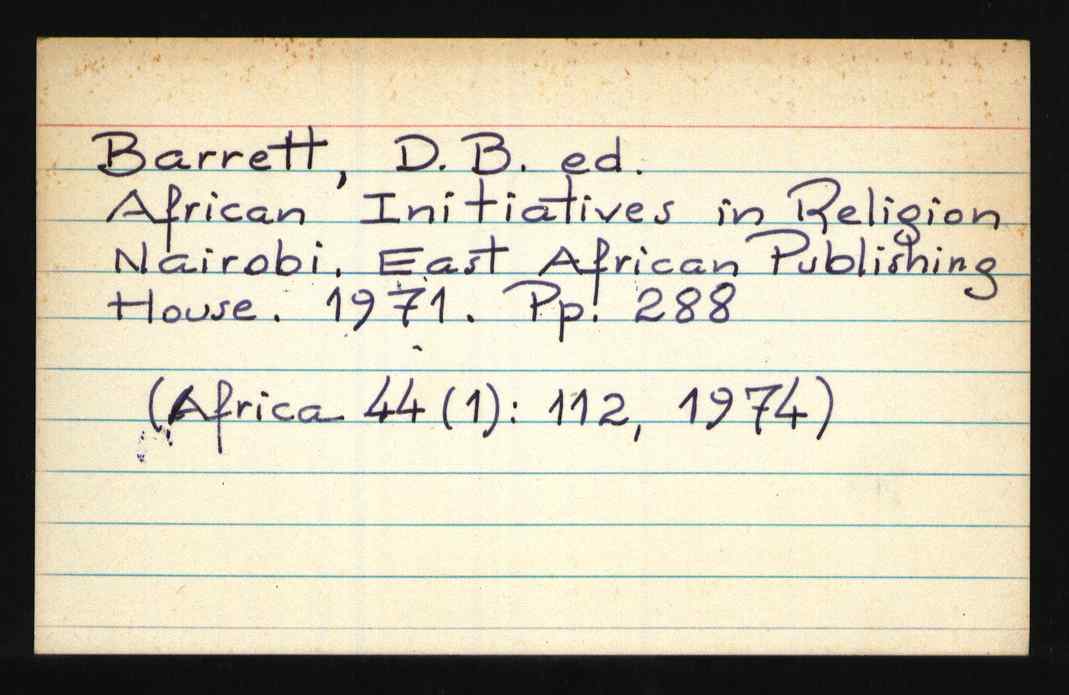 Barrett, D. B. ed.
African Initiatives in Religion
Nairobi. East African Publishing
House. 1971. Pp. 288
(Africa 44(1): 112, 1974)